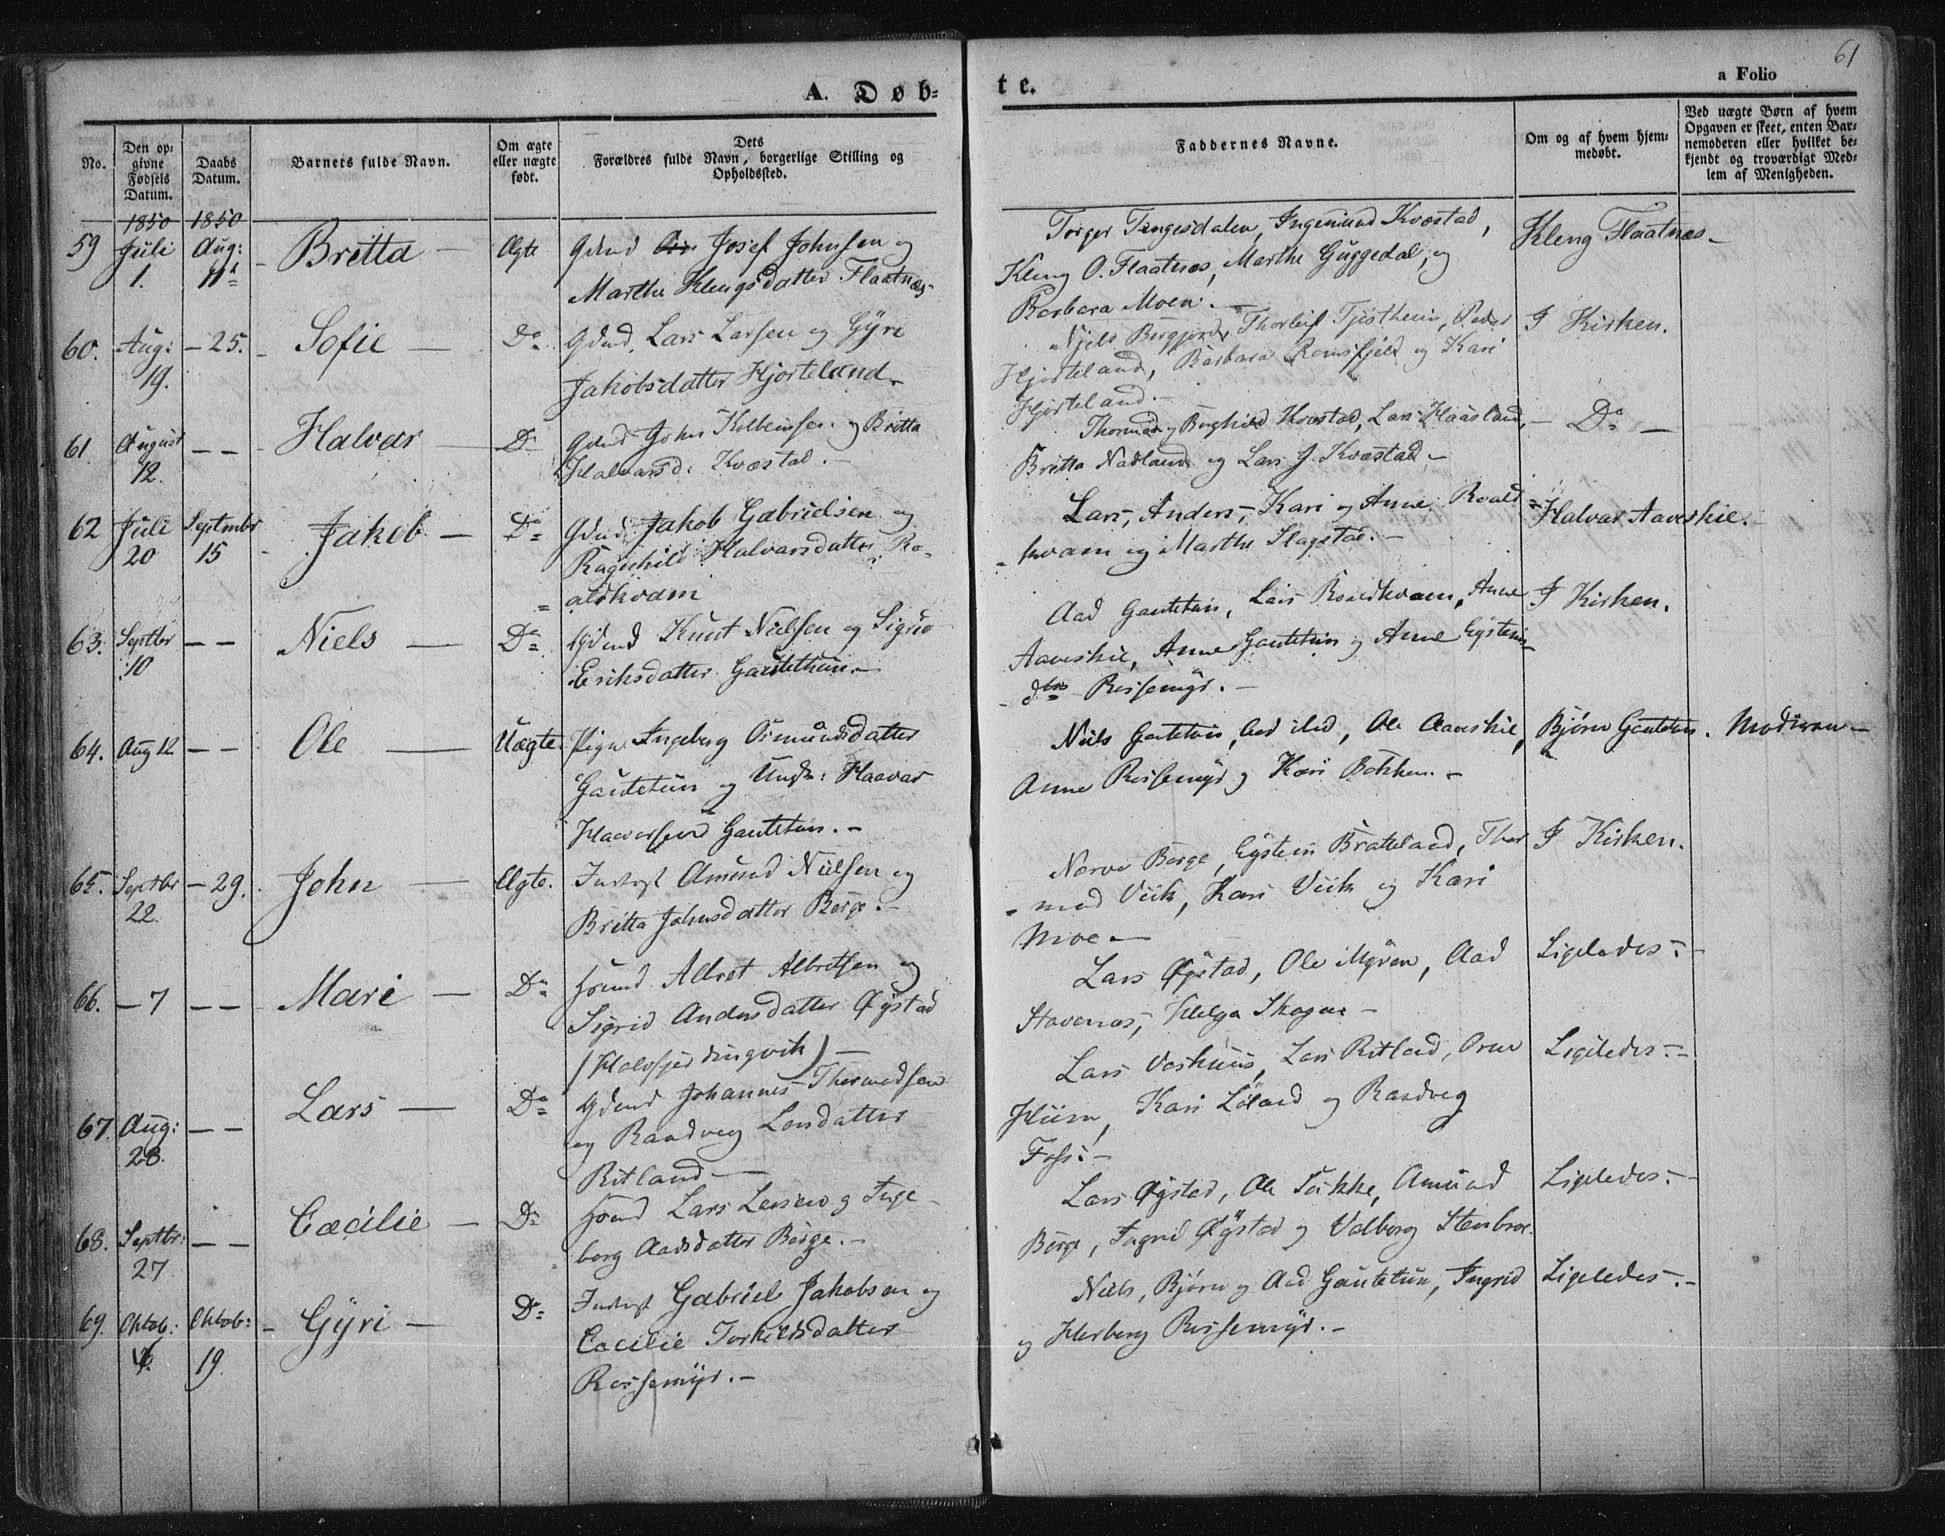 61
A. Døb-
te.
a Folio
No.
Den op-
givne
Fødsels
Datum.
Daabs
Datum.
Barnets fulde Navn.
Om ægte
eller uægte
født.
Dets
Forældres fulde Navn, borgerlige Stilling og
Opholdssted.
Faddernes Navne.
Om og af hvem hjem-
medøbt.
Ved uægte Børn af hvem
Opgaven er skeet, enten Bar-
nemoderen eller hvilket be-
kjendt og troværdigt Med-
lem af Menigheden.
1850 1850
59 Juli 1. Aug: 11te Britta — Ægte
Gdmd Josef Johnsen og
Marthe Klengsdatter Flaatnæs.
Torger Tengesdalen, Ingemund Kvæstad,
Kleng O. Flaatnæs, Marthe Guggedal, og
Barbara Moen. —
Kleng Flaatnæs —
60. Aug: 19. — 25. Sofie — Do
Gdmd. Lars Larsen og Gÿri
Jakobsdatter Hjorteland.
Njels Bergjord, Thorleif Tjøstheim, Peder
Hjorteland, Barbara Ramsfjeld og Kari
Hjorteland. —
I Kirken.
61. August 12. — — Halvar — Do
Gdmd John Kolbeinsen og Britta
Halvarsd: Kvæstad. —
Thormod og Borghild Kvæstad, Lars Haasland,
Britta Nadland og Lars J. Kvæstad —
— Do —
62 Juli 20 Septmber 15 Jakob — Do
Gdmd Jakob Gabrielsen og
Ragnhild Halvarsdatter Ro-
aldkvam
Lars, Anders, Kari og Anne Roald-
kvam og Marthe Slagstad. —
Halvar Aaveskie.
63. Septbr 10 — — Niels — Do
Gdmd Knut Nielsen og Sigrid
Eriksdatter Gautethun. —
Aad Gautetun, Lars Roaldkvam, Anne
Aaveskie, Anne Gautetun og Anne Eÿsteins-
dtr Rissemyr. —
I Kirken.
64. Aug 12 — — Ole — Uægte.
Pige Ingeborg Osmundsdatter
Gautetun og Ungk: Haavar
Haavarsen Gautetun. —
Niels Gautetun, Aad ibd, Ole Aaveskie,
Anne Rissemyr og Kari Bakken. —
Bjørn Gautetun.
Moderen —
65. Septbr 22. — 29. John — Ægte.
Indtogt Amund Nielsen og
Britta Johnsdatter Berge. —
Narve Berge, Eystein Bratteland, Thor-
mod Viik, Kari Viik og Kari
Moe —
I Kirken.
66. — 7 — — Mari — Do
Huusmd Albret Albretsen og
Sigrid Andersdatter Øÿstad
(Halvfjerdingvik) —
Lars Øÿstad, Ole Mÿren, Aad
Stavenæs, Helga Skogen —
Ligeledes. —
67. Aug: 28. — — Lars — Do
Gdmd Johannes Thormodsen
og Randveg Larsdatter
Ritland —
Lars Vashuus, Lars Ritland, Orm
Hiim, Kari Løland og Randveg
Foss. —
Ligeledes. —
68. Septbr: 27 — — Cæcilie — Do
Huusmd Lars Larsen og Inge-
borg Aadsdatter Berge. —
Lars Øÿstad, Ole Fikke, Amund
Berge, Ingrid Øÿstad og Valborg Stenbroe.
Ligeledes. —
69. Oktob: 6. Oktob: 19. Gÿri — Do
Indtogt Gabriel Jakobsen og
Cæcilie Torkildsdatter
Rissemyr. —
Niels, Bjørn og Aad Gautetun, Ingrid
og Herborg Rissemyr. —
Ligeledes. —